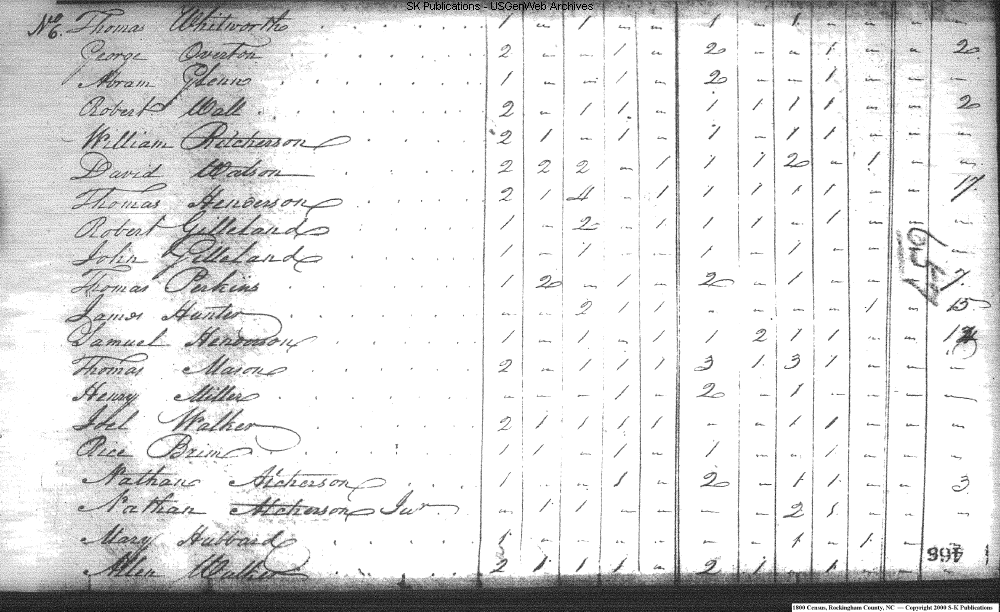 SK Publications - USGenWeb Archives
No 6. Thomas Whitworth 1 - 1 - - 1 - 1 - -
George Overton 2 - - 1 - 2 - - 1 - - 20
Abram Glenn 1 - - 1 - 2 - - 1 - - -
Robert Wall 2 - 1 1 - 1 1 1 1 - - 2
William Ritcherson 2 1 - 1 - 1 - 1 1 - - -
David Watson 2 2 2 - 1 1 1 2 - 1 - -
Thomas Henderson 2 1 4 - 1 1 1 1 1 - - 17
Robert Gilleland 1 - 2 - 1 1 1 - 1 - - -
John Gilleland 1 - 1 - - 1 - 1 - - - -
Thomas Perkins 1 2 - 1 - 2 - 1 - - 7
James Hunter - - 2 1 1 - - - - 1 - 15
Samuel Henderson 1 - 1 - 1 1 2 1 1 - -
Thomas Mason 2 - 1 1 1 3 1 3 1 - - -
Henry Miller - - - 1 - 2 - 1 - - - -
Joel Walker 2 1 1 1 1 - - 1 1 - - -
Rice Brim 1 1 - 1 - 1 - - 1 - - -
Nathan Aicherson 1 - - 1 - 2 - 1 1 - - 3
Nathan Aicherson Junr - 1 1 - - - - 2 1 - - -
Mary Hubbard 1 - - - - - - 1 - 1 - -
Allen Walker 2 1 1 1 - 2 1 - 1 - -
659
466
1800 Census, Rockingham County, NC — Copyright 2000 S-K Publications